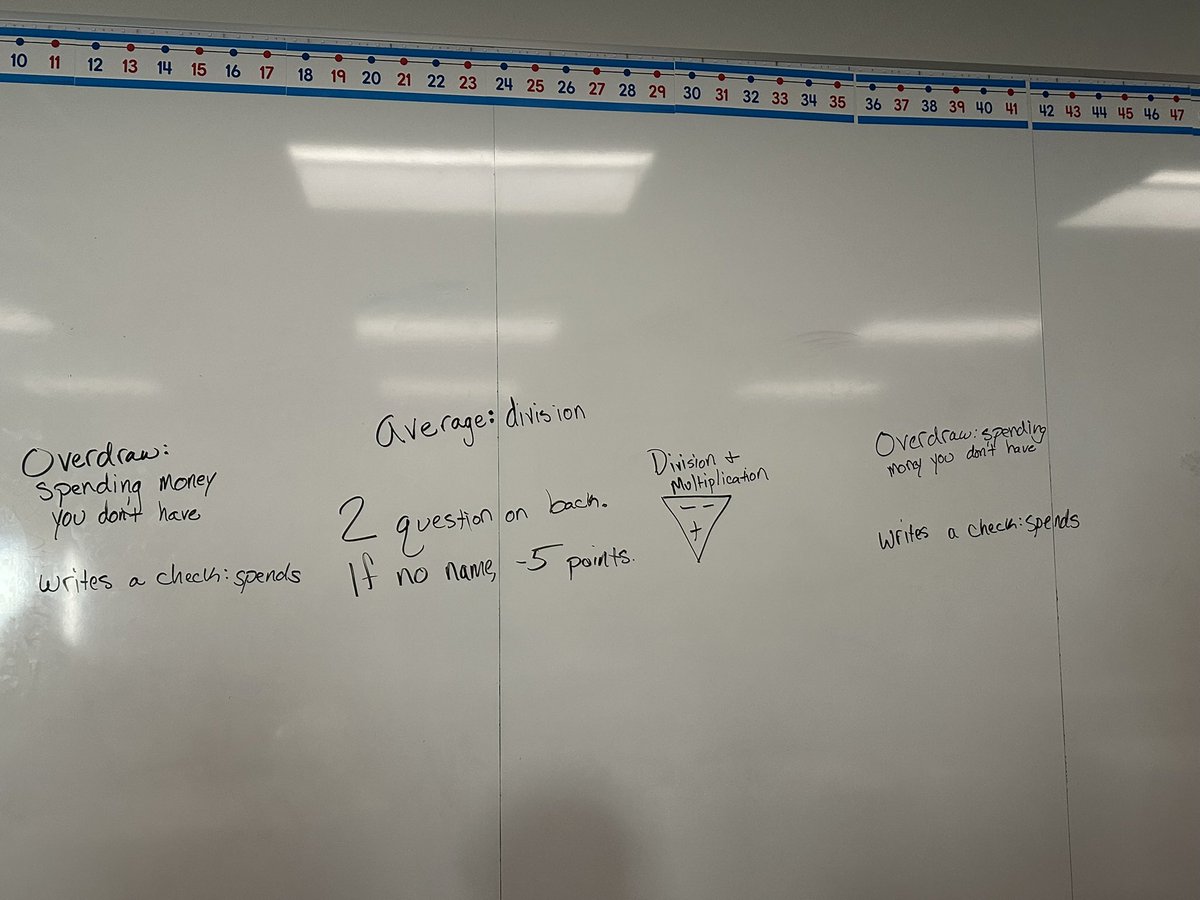 10 11 12 13 14 15 16 17 18 19 20 21 22 23 24 25 26 27 28 29 30 31 32 33 34 35 36 37 38 39 40 41 42 43 44 45 46 47
average: division
Overdraw:
spending money
you don't have
writes a check: spends
2 question on back.
If no name, -5 points.
Division +
Multiplication
- -
+
Overdraw: spending
money you don't have
writes a check: spends